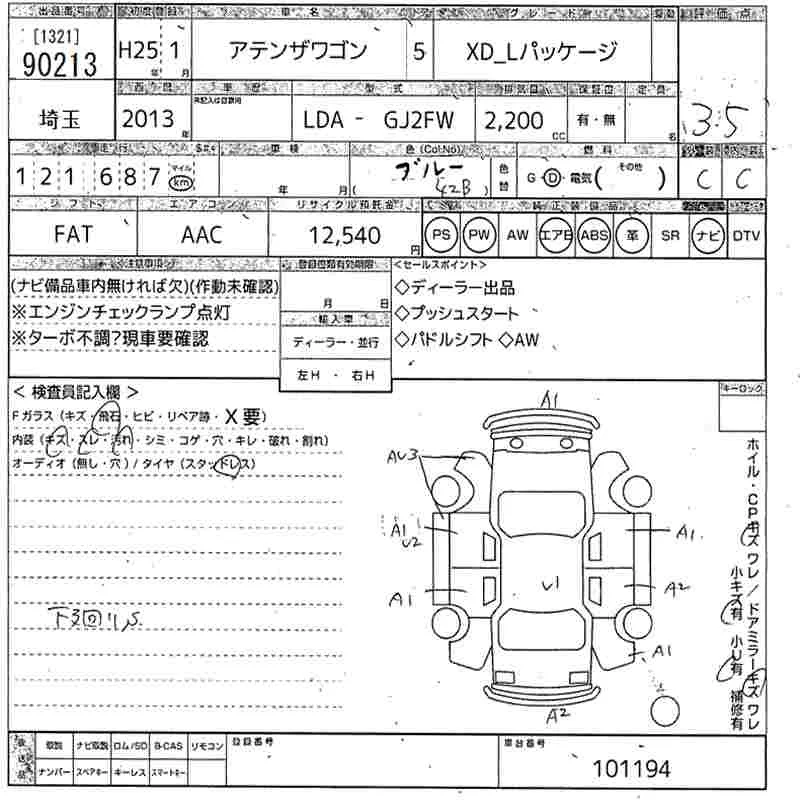 出品番号 初度登録 車名 グレード 評価点
[1321]
90213
H25年 1月 アテンザワゴン 5 XD_Lパッケージ
西暦 車歴 型式 排気量 保証書 定員
未記入は自家用
埼玉 2013年 LDA - GJ2FW 2,200CC 有・無 名 3.5
走行 車検 色(Col.No) 燃料 外装 内装
121,687 マイル km 年 月 ブルー (42B) 色替 G・D・電気( その他 ) C C
シフト エアコン リサイクル預託金 純正装備品
FAT AAC 12,540円 PS PW AW エアB ABS 革 SR ナビ DTV
注意事項 登録書類有効期限 <セールスポイント>
(ナビ備品車内無ければ欠)(作動未確認) 月 日 ◇ディーラー出品
※エンジンチェックランプ点灯 輸入車 ◇プッシュスタート
※ターボ不調?現車要確認 ディーラー・並行 ◇パドルシフト ◇AW
左H ・ 右H
< 検査員記入欄 > キーロック
Fガラス(キズ・飛石・ヒビ・リペア跡・X要)
内装(キズ・スレ・汚れ・シミ・コゲ・穴・キレ・破れ・割れ)
オーディオ(無し・穴)/タイヤ(スタッドレス)
A1
AU3
A1 U2 A1.
U1
A1 A2
A1
A2
下回りS
ホイル・CPキズ ワレ/ドアミラーキズ ワレ
小キズ有 小U有 補修有
発送品 取説 ナビ取説 ロム/SD B-CAS リモコン 登録番号 車台番号
ナンバー スペアキー キーレス スマートキー 101194